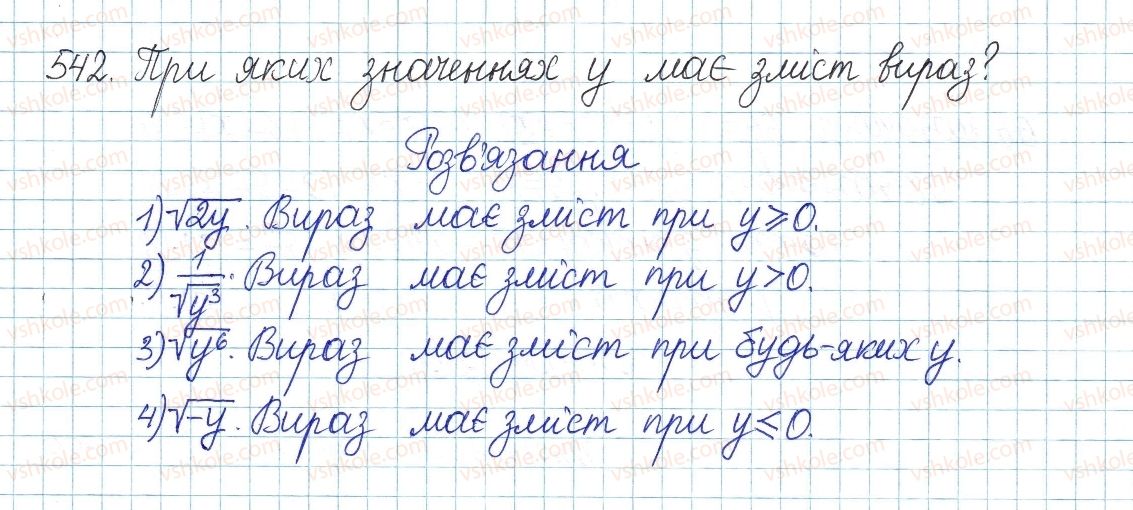 542. При яких значеннях y має зміст вираз?
Розв'язання
1) √2y. Вираз має зміст при y ≥ 0.
2) 1/√y³. Вираз має зміст при y > 0.
3) √y⁶. Вираз має зміст при будь-яких y.
4) √-y. Вираз має зміст при y ≤ 0.